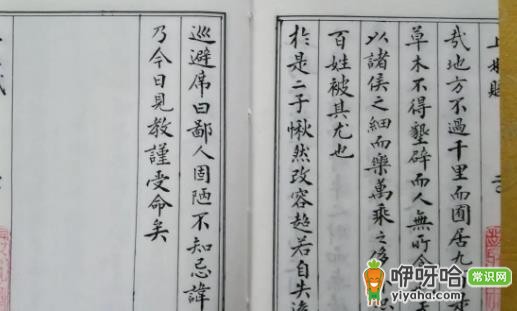 上林賦
哉地方不過千里而囿居九
草木不得墾辟而人無所食
以諸侯之細而樂萬乘之侈
百姓被其尤也
於是二子愀然改容超若自失逡
巡避席曰鄙人固陋不知忌諱
乃今日見教謹受命矣
咿呀哈 常识网
yiyaha.com